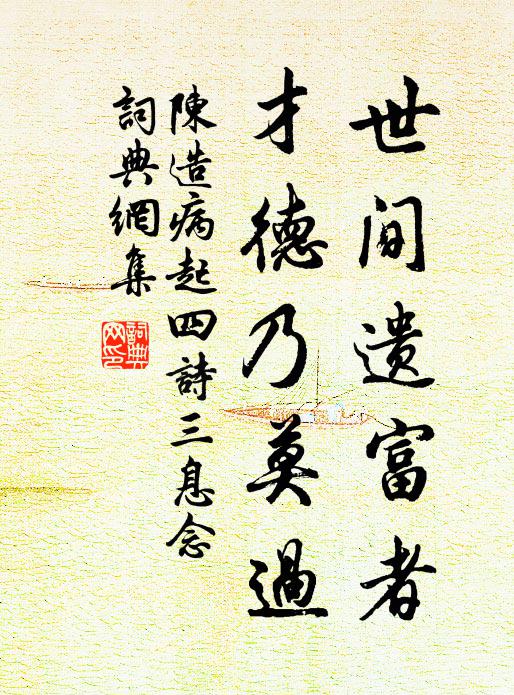 世間遺富者
才德乃莫過
陳造病起四詩三息念
詞典網集
詞典
网印